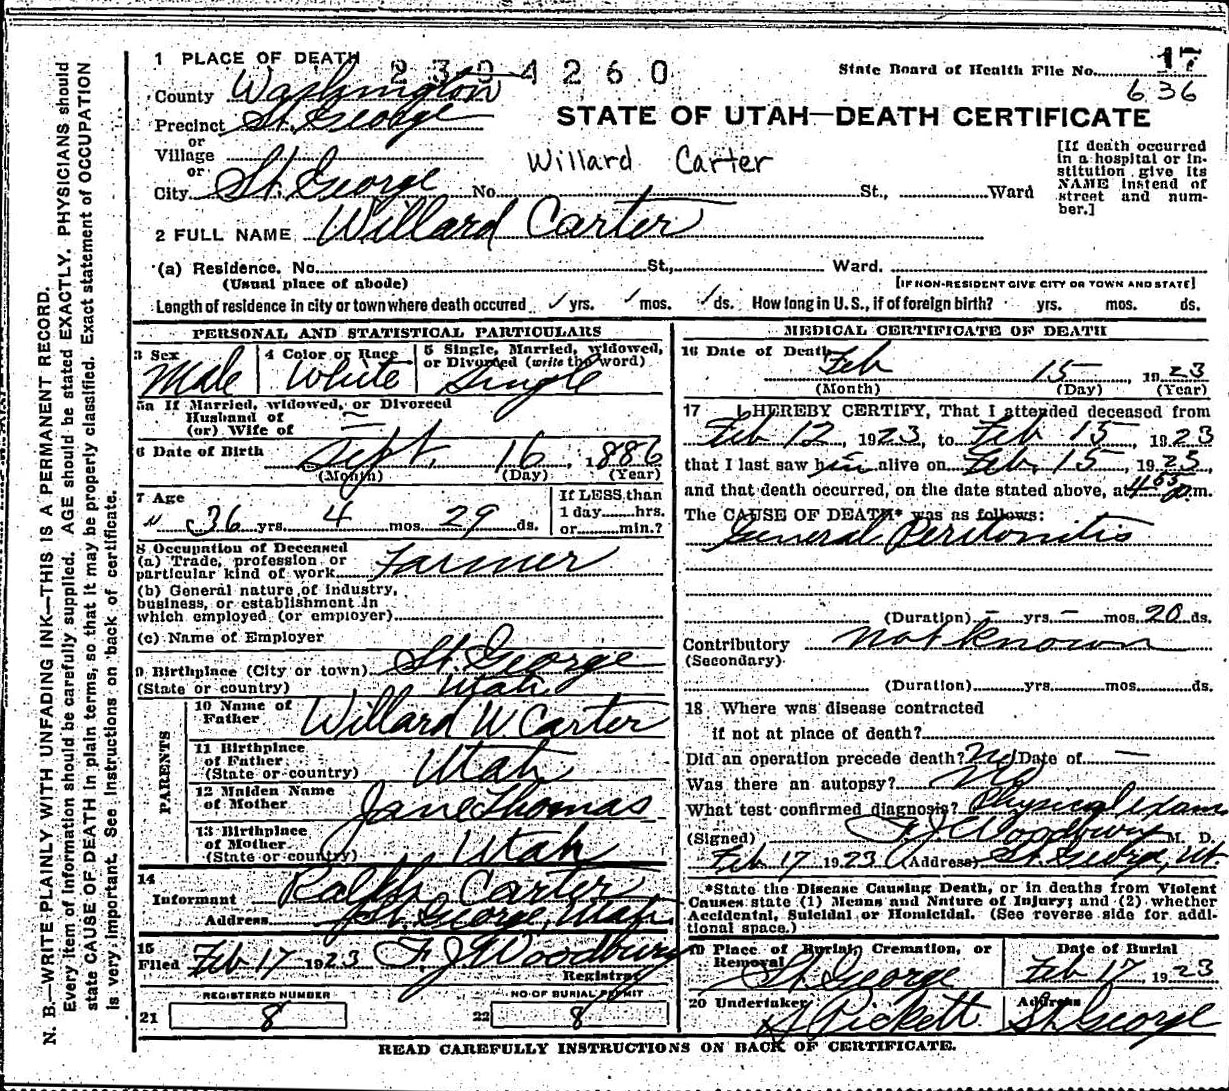 1 PLACE OF DEATH
2304260
State Board of Health File No. 17
636
County Washington
STATE OF UTAH—DEATH CERTIFICATE
Precinct St. George
or
Village
or
Willard Carter
City St. George No. St., Ward
[If death occurred in a hospital or institution, give its NAME instead of street and number.]
2 FULL NAME Willard Carter
(a) Residence. No. St., Ward.
(Usual place of abode) [IF NON-RESIDENT GIVE CITY OR TOWN AND STATE]
Length of residence in city or town where death occured / yrs. / mos. / ds. How long in U.S., if of foreign birth? yrs. mos. ds.
PERSONAL AND STATISTICAL PARTICULARS
3 Sex 4 Color or Race 5 Single, Married, widowed,
or Divorced (write the word)
Male White Single
5a If Married, widowed, or Divorced
Husband of —
(or) Wife of —
6 Date of Birth Sept. 16, 1886
(Month) (Day) (Year)
7 Age If LESS than
36 yrs. 4 mos. 29 ds. 1 day hrs.
or min.?
8 Occupation of Deceased
(a) Trade, profession or
particular kind of work Farmer
(b) General nature of industry,
business, or establishment in
which employed (or employer)
(c) Name of Employer
9 Birthplace (City or town) St. George
(State or country) Utah
PARENTS
10 Name of
Father Willard W. Carter
11 Birthplace
of Father
(State or country) Utah
12 Maiden Name
of Mother Jane Thomas
13 Birthplace
of Mother
(State or country) Utah
14
Informant Ralph Carter
Address St. George, Utah
15
Filed Feb 17 1923 F. J. Woodbury
Registrar
REGISTERED NUMBER NO OF BURIAL PERMIT
21 8 22 8
MEDICAL CERTIFICATE OF DEATH
16 Date of Death Feb 15, 1923
(Month) (Day) (Year)
17 I HEREBY CERTIFY, That I attended deceased from
Feb 12, 1923, to Feb 15, 1923
that I last saw him alive on Feb. 15, 1923,
and that death occurred, on the date stated above, at P.m.
The CAUSE OF DEATH* was as follows:
General Peritonitis
(Duration) – yrs. – mos. 20 ds.
Contributory not known
(Secondary)
(Duration) yrs. mos. ds.
18 Where was disease contracted
if not at place of death?
Did an operation precede death? No Date of —
Was there an autopsy? No
What test confirmed diagnosis? Physical exam
(Signed) F. J. Woodbury M. D.
Feb 17 1923 (Address) St. George, Ut.
*State the Disease Causing Death, or in deaths from Violent
Causes state (1) Means and Nature of Injury; and (2) whether
Accidental, Suicidal or Homicidal. (See reverse side for additional space.)
19 Place of Burial, Cremation, or Date of Burial
Removal St. George Feb 17 1923
20 Undertaker Address
Pickett St. George
READ CAREFULLY INSTRUCTIONS ON BACK OF CERTIFICATE.
N. B.—WRITE PLAINLY WITH UNFADING INK—THIS IS A PERMANENT RECORD.
Every item of information should be carefully supplied. AGE should be stated EXACTLY. PHYSICIANS should
state CAUSE OF DEATH in plain terms, so that it may be properly classified. Exact statement of OCCUPATION
is very important. See instructions on back of certificate.